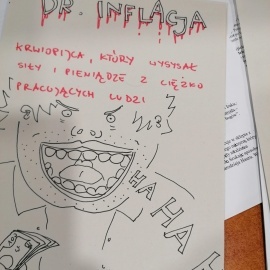 DR. INFLACJA
KRWIOPIJCA, KTÓRY WYSYSAŁ
SIŁY I PIENIĄDZE Z CIĘŻKO
PRACUJĄCYCH LUDZI
HA
HA